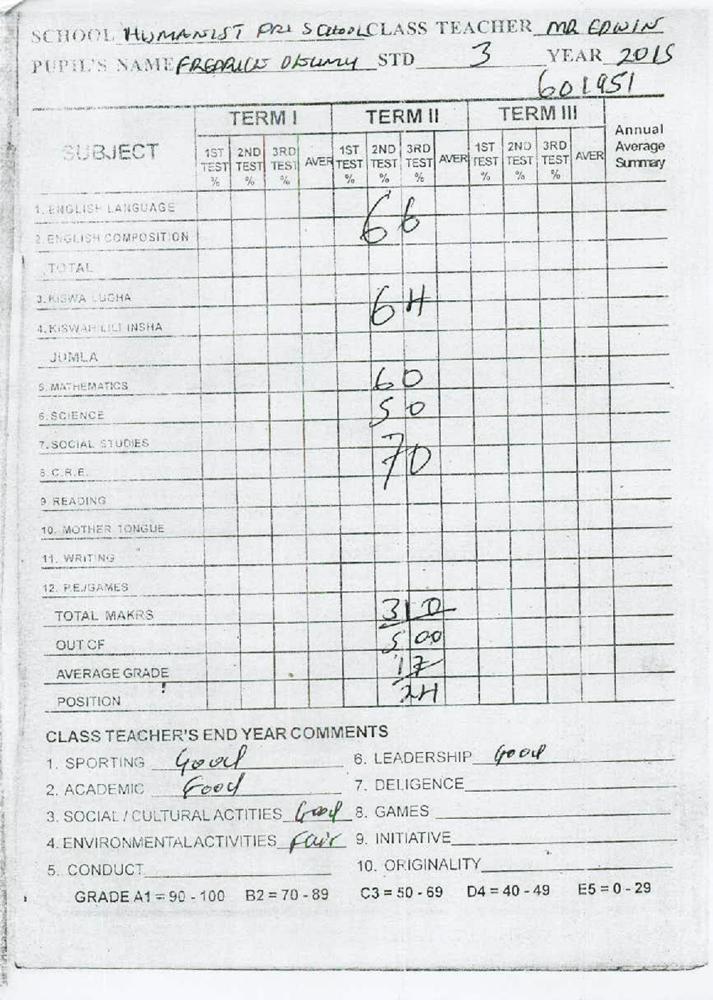 SCHOOL HUMANIST PRI SCHOOL CLASS TEACHER MR EDWIN
PUPIL'S NAME FREDRICK STD 3 YEAR 2015
601951
SUBJECT TERM I TERM II TERM III Annual Average Summary
1ST TEST % 2ND TEST % 3RD TEST % AVER 1ST TEST % 2ND TEST % 3RD TEST % AVER 1ST TEST % 2ND TEST % 3RD TEST % AVER
1. ENGLISH LANGUAGE 66
2. ENGLISH COMPOSITION
TOTAL
3. KISWA LUGHA 64
4. KISWAHILI INSHA
JUMLA
5. MATHEMATICS 60
6. SCIENCE 50
7. SOCIAL STUDIES 70
8. C.R.E.
9. READING
10. MOTHER TONGUE
11. WRITING
12. P.E./GAMES
TOTAL MAKRS 310
OUT OF 500
AVERAGE GRADE 17
POSITION 24
CLASS TEACHER'S END YEAR COMMENTS
1. SPORTING Good 6. LEADERSHIP Good
2. ACADEMIC Good 7. DELIGENCE
3. SOCIAL / CULTURAL ACTITIES Good 8. GAMES
4. ENVIRONMENTAL ACTIVITIES Fair 9. INITIATIVE
5. CONDUCT 10. ORIGINALITY
GRADE A1 = 90 - 100 B2 = 70 - 89 C3 = 50 - 69 D4 = 40 - 49 E5 = 0 - 29